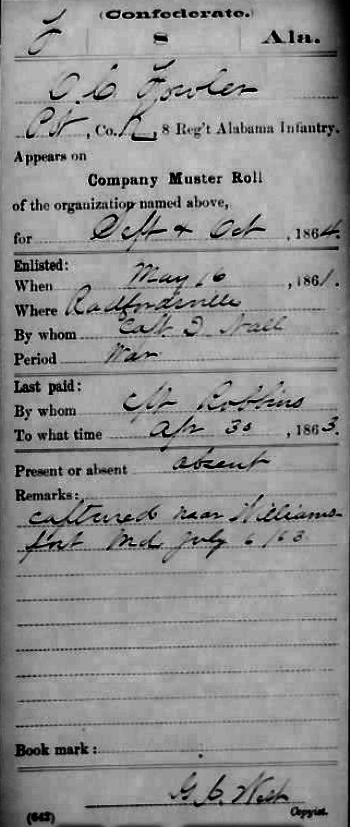 (Confederate.)
F 8 Ala.
O. C. Fowler
Pvt, Co. K, 8 Reg't Alabama Infantry.
Appears on
Company Muster Roll
of the organization named above,
for Sept & Oct, 1864.
Enlisted:
When May 16, 1861.
Where Radfordsville
By whom Capt D. Nall
Period War
Last paid:
By whom Cpt Robbins
To what time Apr 30, 1863.
Present or absent absent
Remarks:
captured near Williams-
port Md July 6/63
Book mark:
G. C.
(642) Copyist.